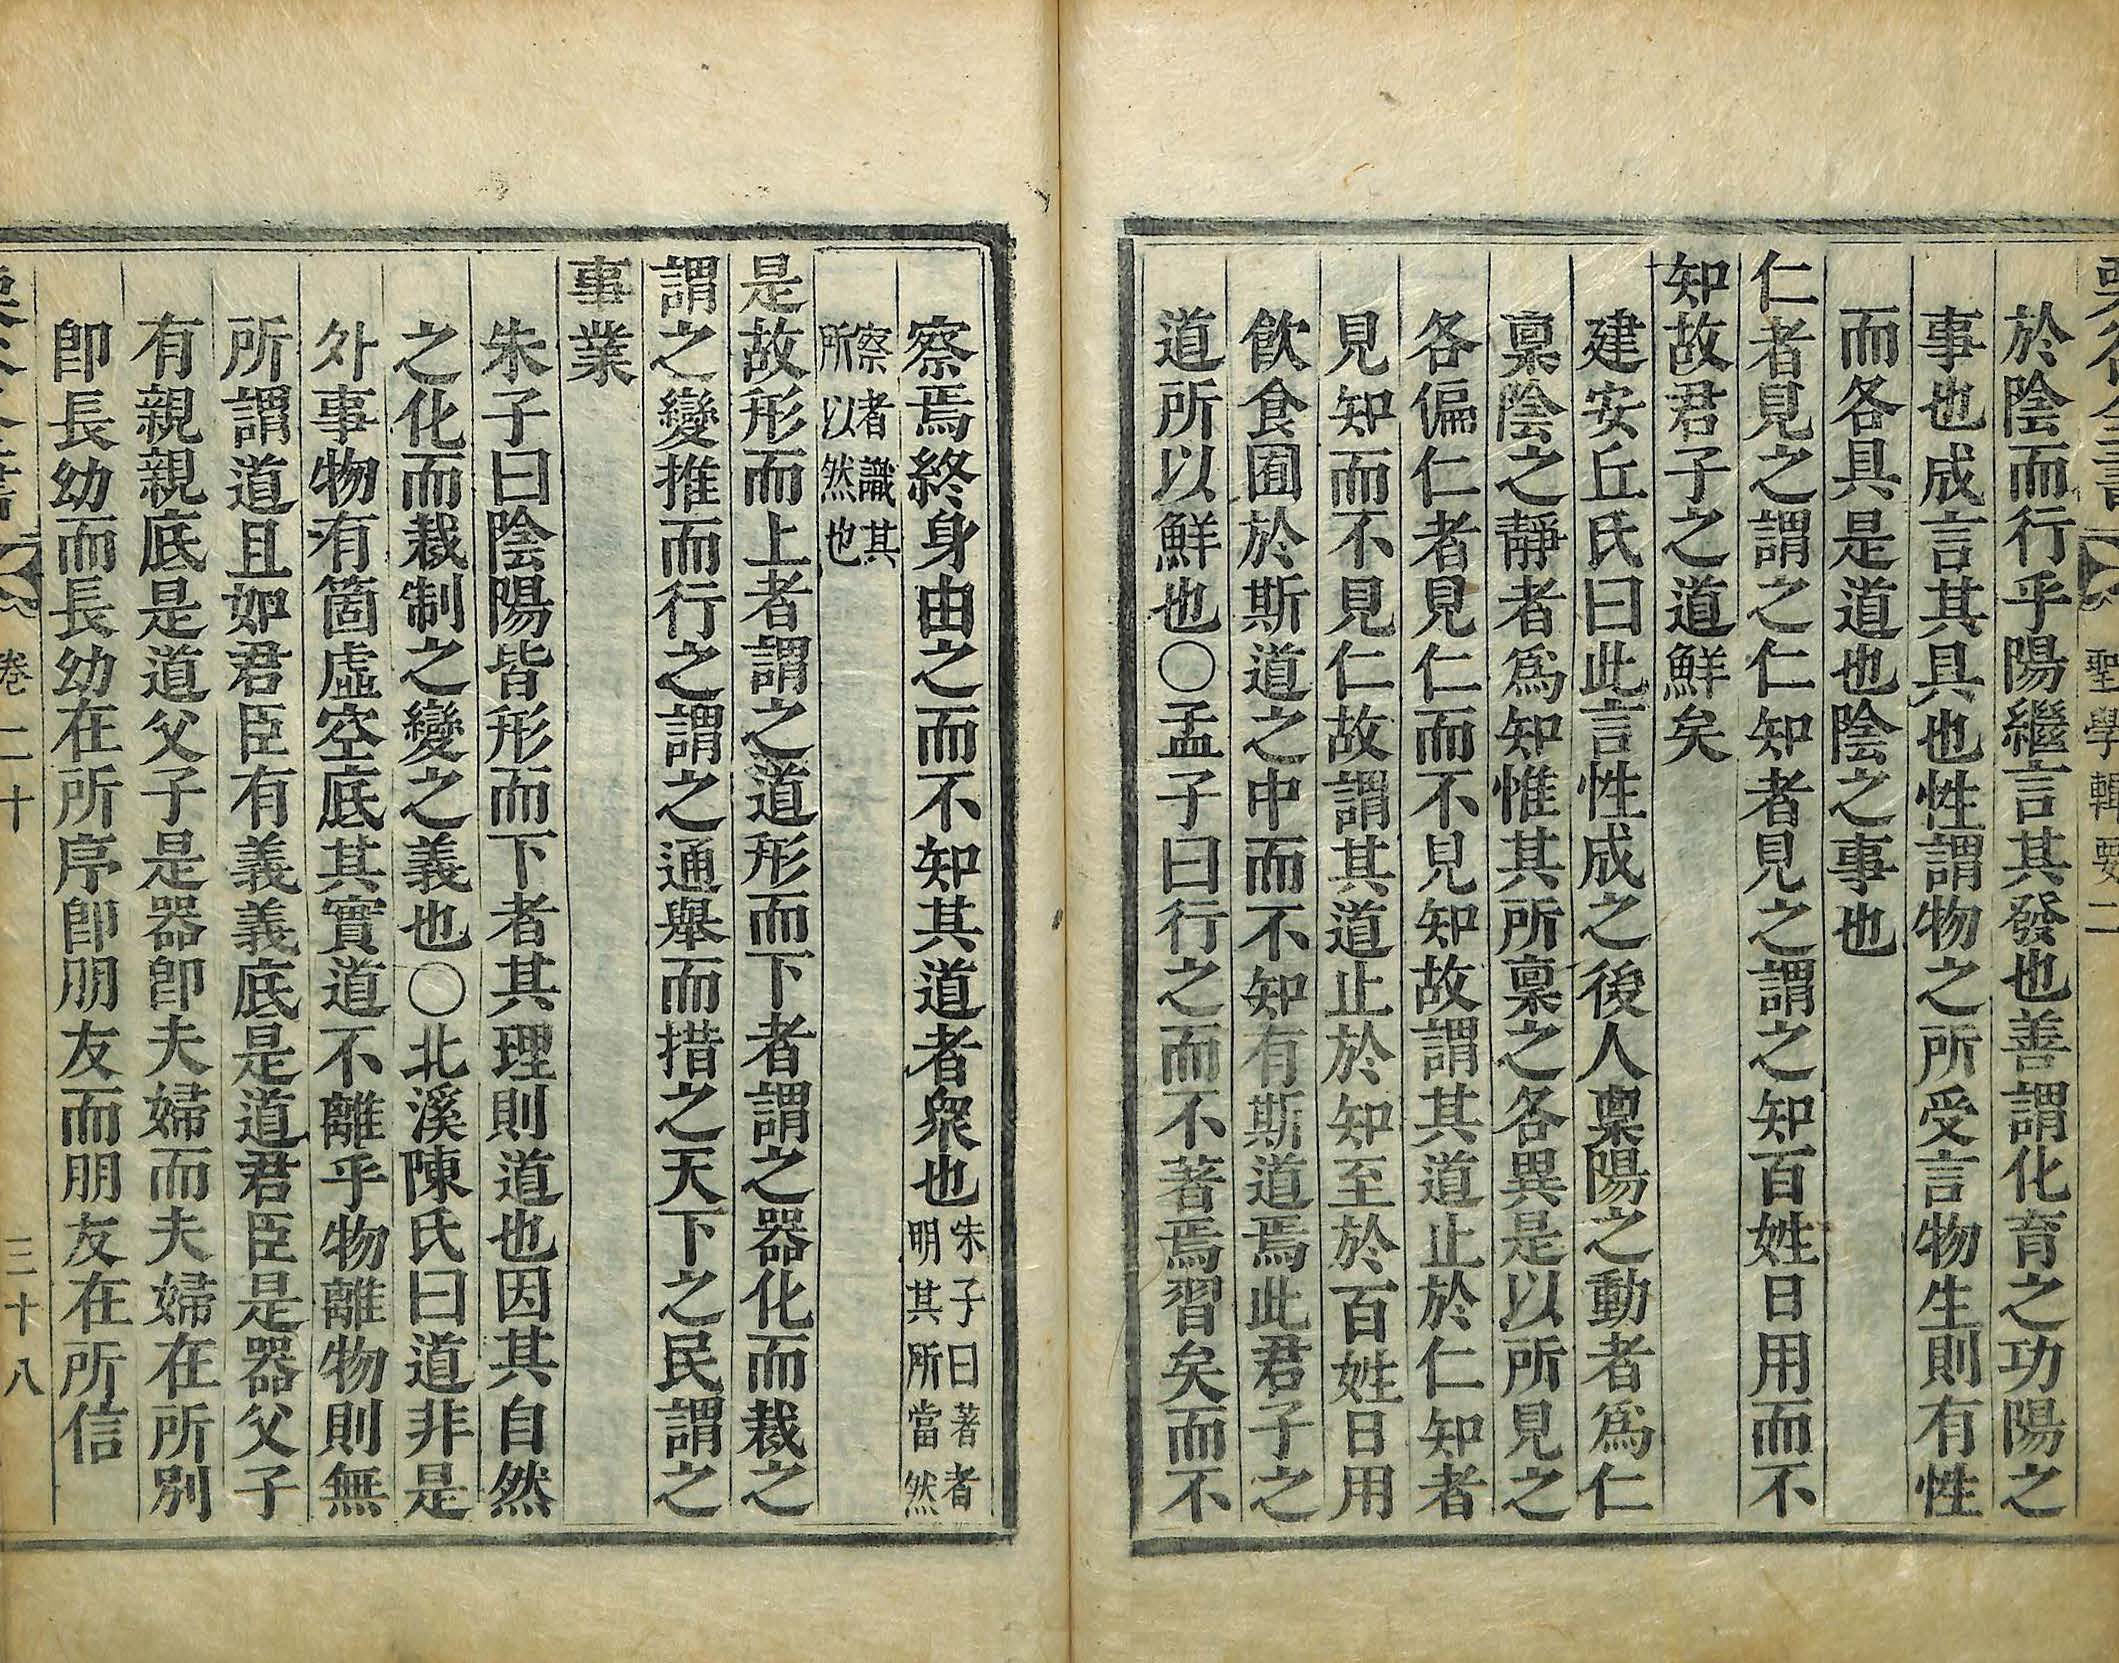 聖學輯要二
於陰而行乎陽繼言其發也善謂化育之功陽之
事也成言其具也性謂物之所受言物生則有性
而各具是道也陰之事也
仁者見之謂之仁知者見之謂之知百姓日用而不
知故君子之道鮮矣
建安丘氏曰此言性成之後人稟陽之動者爲仁
稟陰之靜者爲知惟其所稟之各異是以所見之
各偏仁者見仁而不見知故謂其道止於仁知者
見知而不見仁故謂其道止於知至於百姓日用
飮食囿於斯道之中而不知有斯道焉此君子之
道所以鮮也○孟子曰行之而不著焉習矣而不
察焉終身由之而不知其道者衆也朱子曰著者
明其所當然
察者識其
所以然也
是故形而上者謂之道形而下者謂之器化而裁之
謂之變推而行之謂之通舉而措之天下之民謂之
事業
朱子曰陰陽皆形而下者其理則道也因其自然
之化而裁制之變之義也○北溪陳氏曰道非是
外事物有箇虛空底其實道不離乎物離物則無
所謂道且如君臣有義義底是道君臣是器父子
有親親底是道父子是器卽夫婦而夫婦在所別
卽長幼而長幼在所序卽朋友而朋友在所信
卷二十 三十八